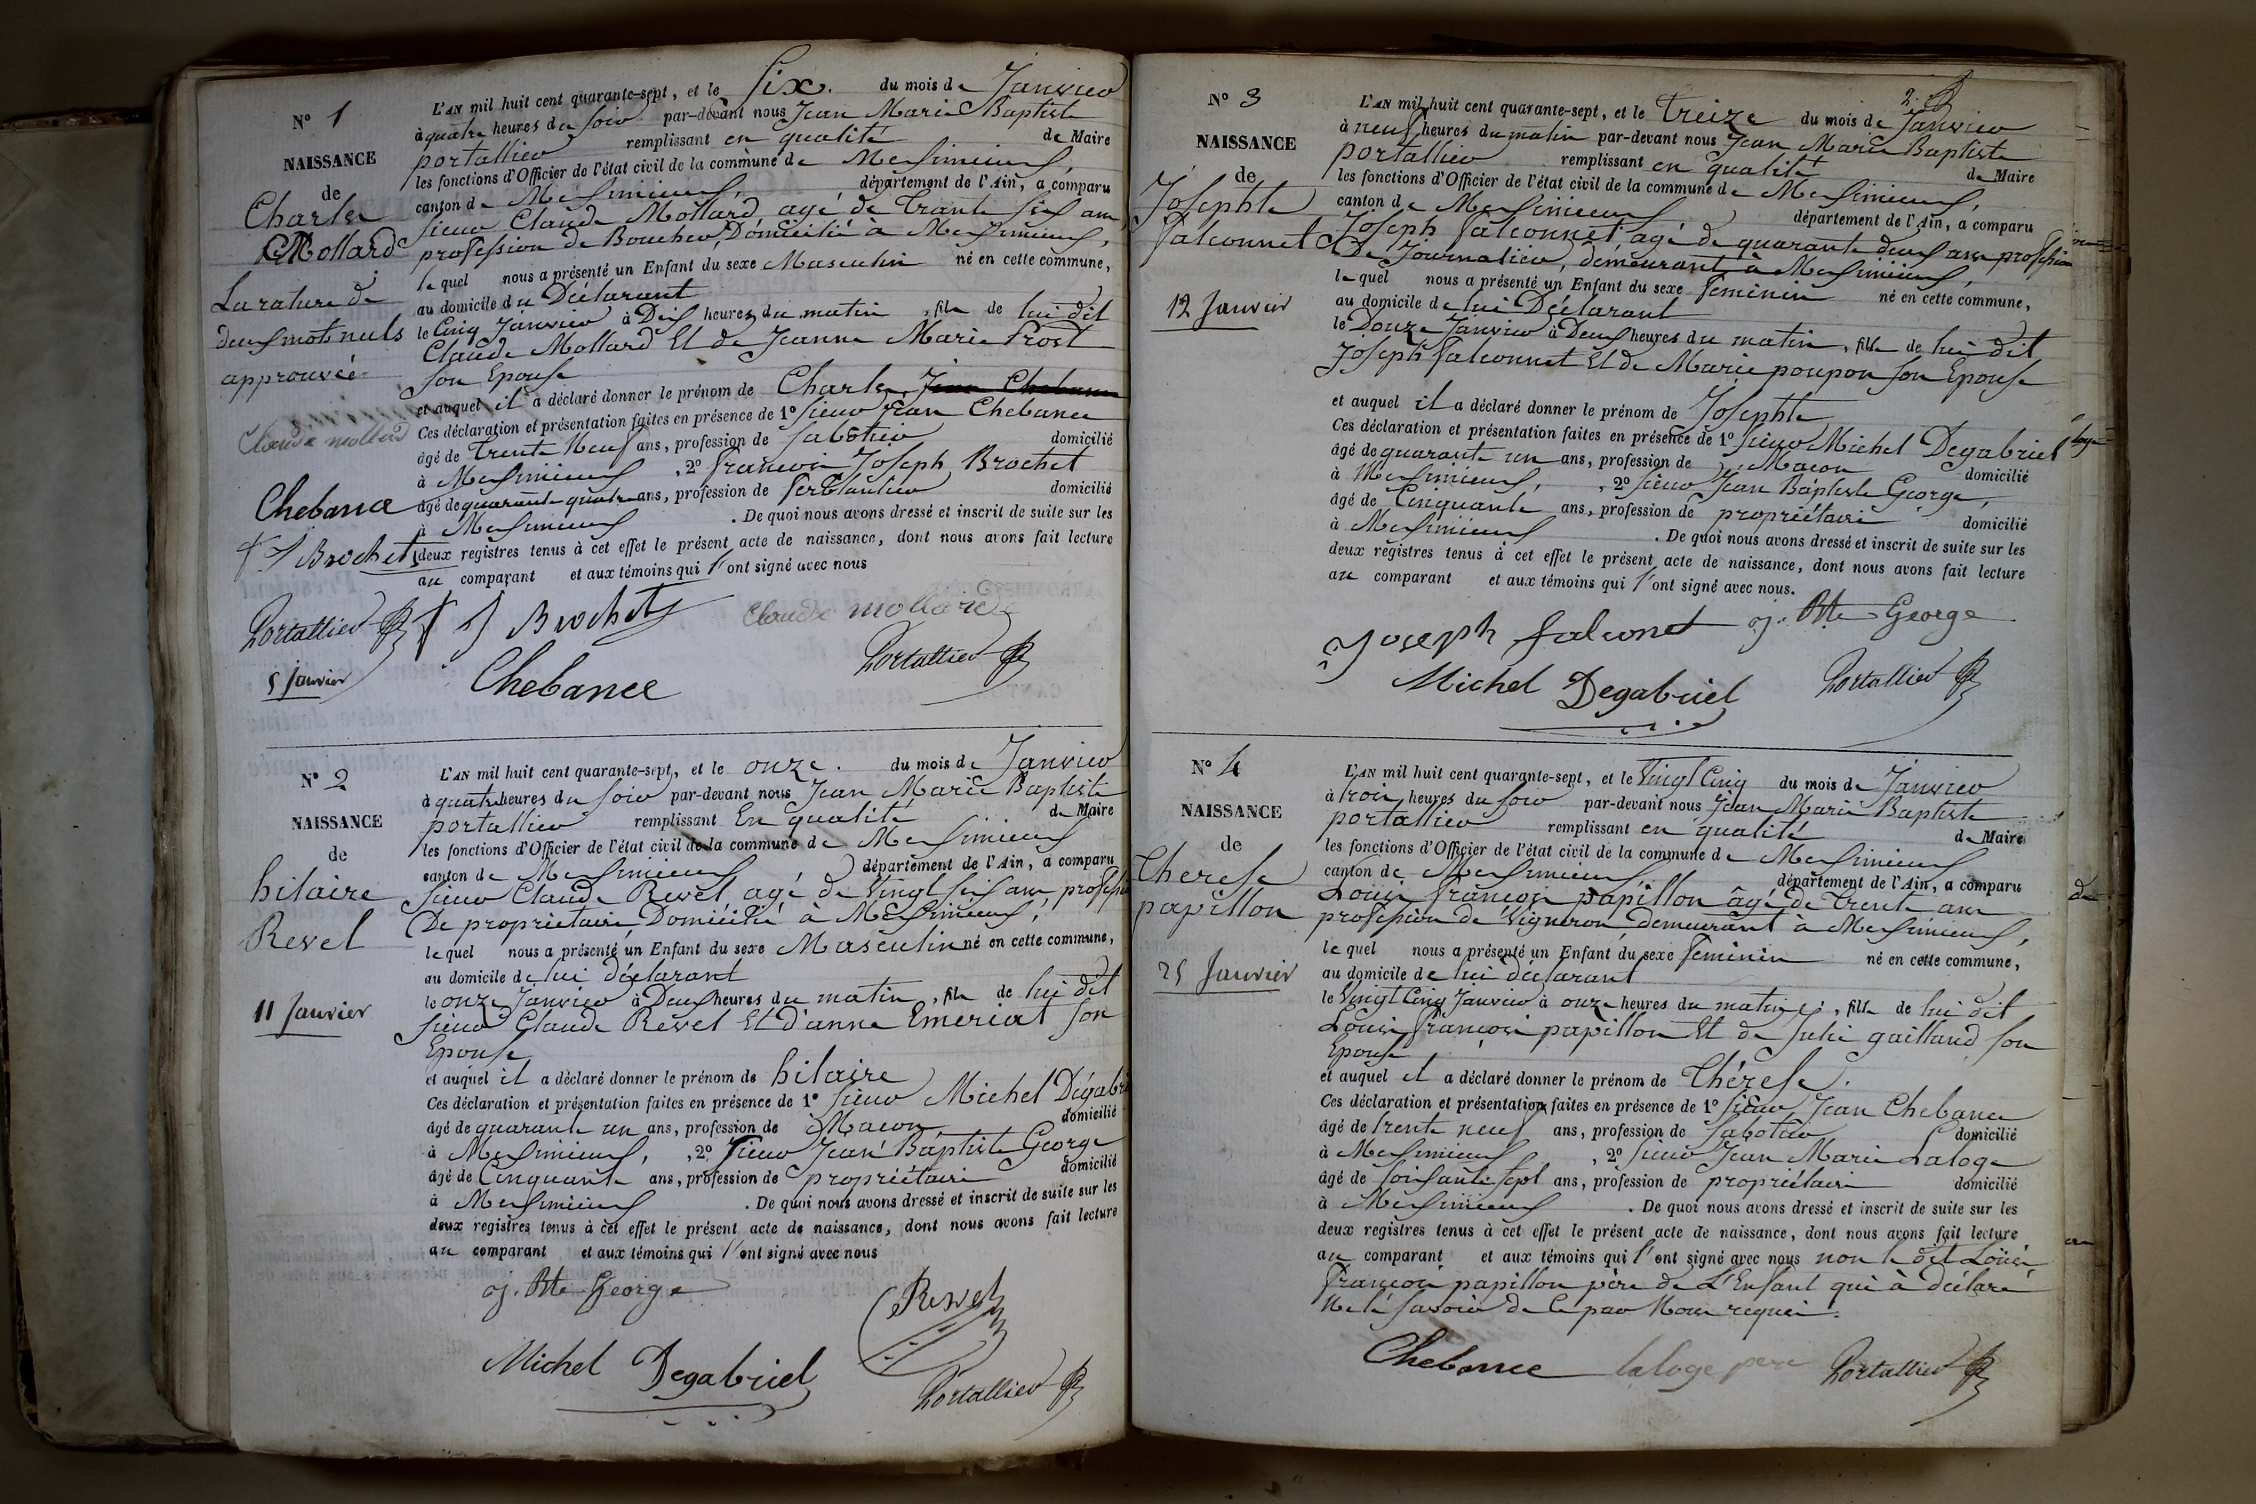 N° 1
NAISSANCE
de
Charles
Mollard
La rature de
deux mots nuls
approuvée
Claude mollard
Chebance
f J Brochet
Portallier
5 Janvier
L'AN mil huit cent quarante-sept, et le Six. du mois de Janvier
à quatre heures du Soir par-devant nous Jean Marie Baptiste
portallier remplissant en qualité de Maire
les fonctions d'Officier de l'état civil de la commune de Messimieux,
canton de Messimieux, département de l'Ain, a comparu
Sieur Claude Mollard agé de trante six ans,
profession de Boucher, Domicilié à Messimieux,
lequel nous a présenté un Enfant du sexe Masculin né en cette commune,
au domicile du Déclarant
le Cinq Janvier à Dix heures du matin, fils de lui dit
Claude Mollard Et de Jeanne Marie Prost
son Epouse
et auquel il a déclaré donner le prénom de Charles
Ces déclaration et présentation faites en présence de 1° Sieur Jean Chebance
âgé de trente Neuf ans, profession de Sabotier domicilié
à Messimieux, 2° françois Joseph Brochet
âgé de quarante quatre ans, profession de ferblantier domicilié
à Messimieux. De quoi nous avons dressé et inscrit de suite sur les
deux registres tenus à cet effet le présent acte de naissance, dont nous avons fait lecture
au comparant et aux témoins qui l'ont signé avec nous
f J Brochet Claude mollard
Chebance Portallier
N° 2
NAISSANCE
de
hilaire
Revel
11 Janvier
L'AN mil huit cent quarante-sept, et le onze. du mois de Janvier
à quatre heures du Soir par-devant nous Jean Marie Baptiste
portallier remplissant En qualité de Maire
les fonctions d'Officier de l'état civil de la commune de Messimieux
canton de Messimieux département de l'Ain, a comparu
Sieur Claude Revel, agé de Vingt six ans profession
De propriétaire, Domicilié à Messimieux,
lequel nous a présenté un Enfant du sexe Masculin né en cette commune,
au domicile de lui déclarant
le onze Janvier à Deux heures du matin, fils de lui dit
Sieur Claude Revel Et d'anne Emeriat son
Epouse
et auquel il a déclaré donner le prénom de hilaire
Ces déclaration et présentation faites en présence de 1° Sieur Michel Dégabri
âgé de quarante un ans, profession de Macon domicilié
à Messimieux, 2° Sieur Jean Baptiste George
âgé de Cinquante ans, profession de propriétaire domicilié
à Messimieux. De quoi nous avons dressé et inscrit de suite sur les
deux registres tenus à cet effet le présent acte de naissance, dont nous avons fait lecture
au comparant et aux témoins qui l'ont signé avec nous
j. Bte George Revel
Michel Degabriel Portallier
2.
N° 3
NAISSANCE
de
Josephte
falconnet
12 Janvier
L'AN mil huit cent quarante-sept, et le treize du mois de Janvier
à neuf heures du matin par-devant nous Jean Marie Baptiste
portallier remplissant en qualité de Maire
les fonctions d'Officier de l'état civil de la commune de Messimieux,
canton de Messimieux, département de l'Ain, a comparu
Joseph falconnet, agé de quarante deux ans profession
De Journalier, demeurant à Messimieux,
lequel nous a présenté un Enfant du sexe feminin né en cette commune,
au domicile de lui Déclarant
le Douze Janvier à Deux heures du matin, fille de lui dit
Joseph falconnet Et de Marie poupon son Epouse
et auquel il a déclaré donner le prénom de Josephte
Ces déclaration et présentation faites en présence de 1° Sieur Michel Degabriel
âgé de quarante un ans, profession de Macon domicilié
à Messimieux, 2° Sieur Jean Baptiste George,
âgé de Cinquante ans, profession de propriétaire domicilié
à Messimieux. De quoi nous avons dressé et inscrit de suite sur les
deux registres tenus à cet effet le présent acte de naissance, dont nous avons fait lecture
au comparant et aux témoins qui l'ont signé avec nous.
Joseph falconet j. Bte George
Michel Degabriel Portallier
N° 4
NAISSANCE
de
Therese
papillon
25 Janvier
L'AN mil huit cent quarante-sept, et le Vingt Cinq du mois de Janvier
à trois heures du soir par-devant nous Jean Marie Baptiste
portallier remplissant en qualité de Maire
les fonctions d'Officier de l'état civil de la commune de Messimieux
canton de Messimieux, département de l'Ain, a comparu
Louis françois papillon âgé de trente ans
profession de Vigneron demeurant à Messimieux,
lequel nous a présenté un Enfant du sexe feminin né en cette commune,
au domicile de lui déclarant
le Vingt Cinq Janvier à onze heures du matin, fille de lui dit
Louis françois papillon Et de Julie gailland son
Epouse
et auquel il a déclaré donner le prénom de Thérese.
Ces déclaration et présentation faites en présence de 1° Sieur Jean Chebance
âgé de trente neuf ans, profession de Sabotier domicilié
à Messimieux, 2° Sieur Jean Marie Laloge
âgé de Soixante sept ans, profession de propriétaire domicilié
à Messimieux. De quoi nous avons dressé et inscrit de suite sur les
deux registres tenus à cet effet le présent acte de naissance, dont nous avons fait lecture
au comparant et aux témoins qui l'ont signé avec nous non le dit Louis
françois papillon père de L'Enfant qui à déclaré
Ne le savoir de ce par Nous requis.
Chebance laloge pere Portallier